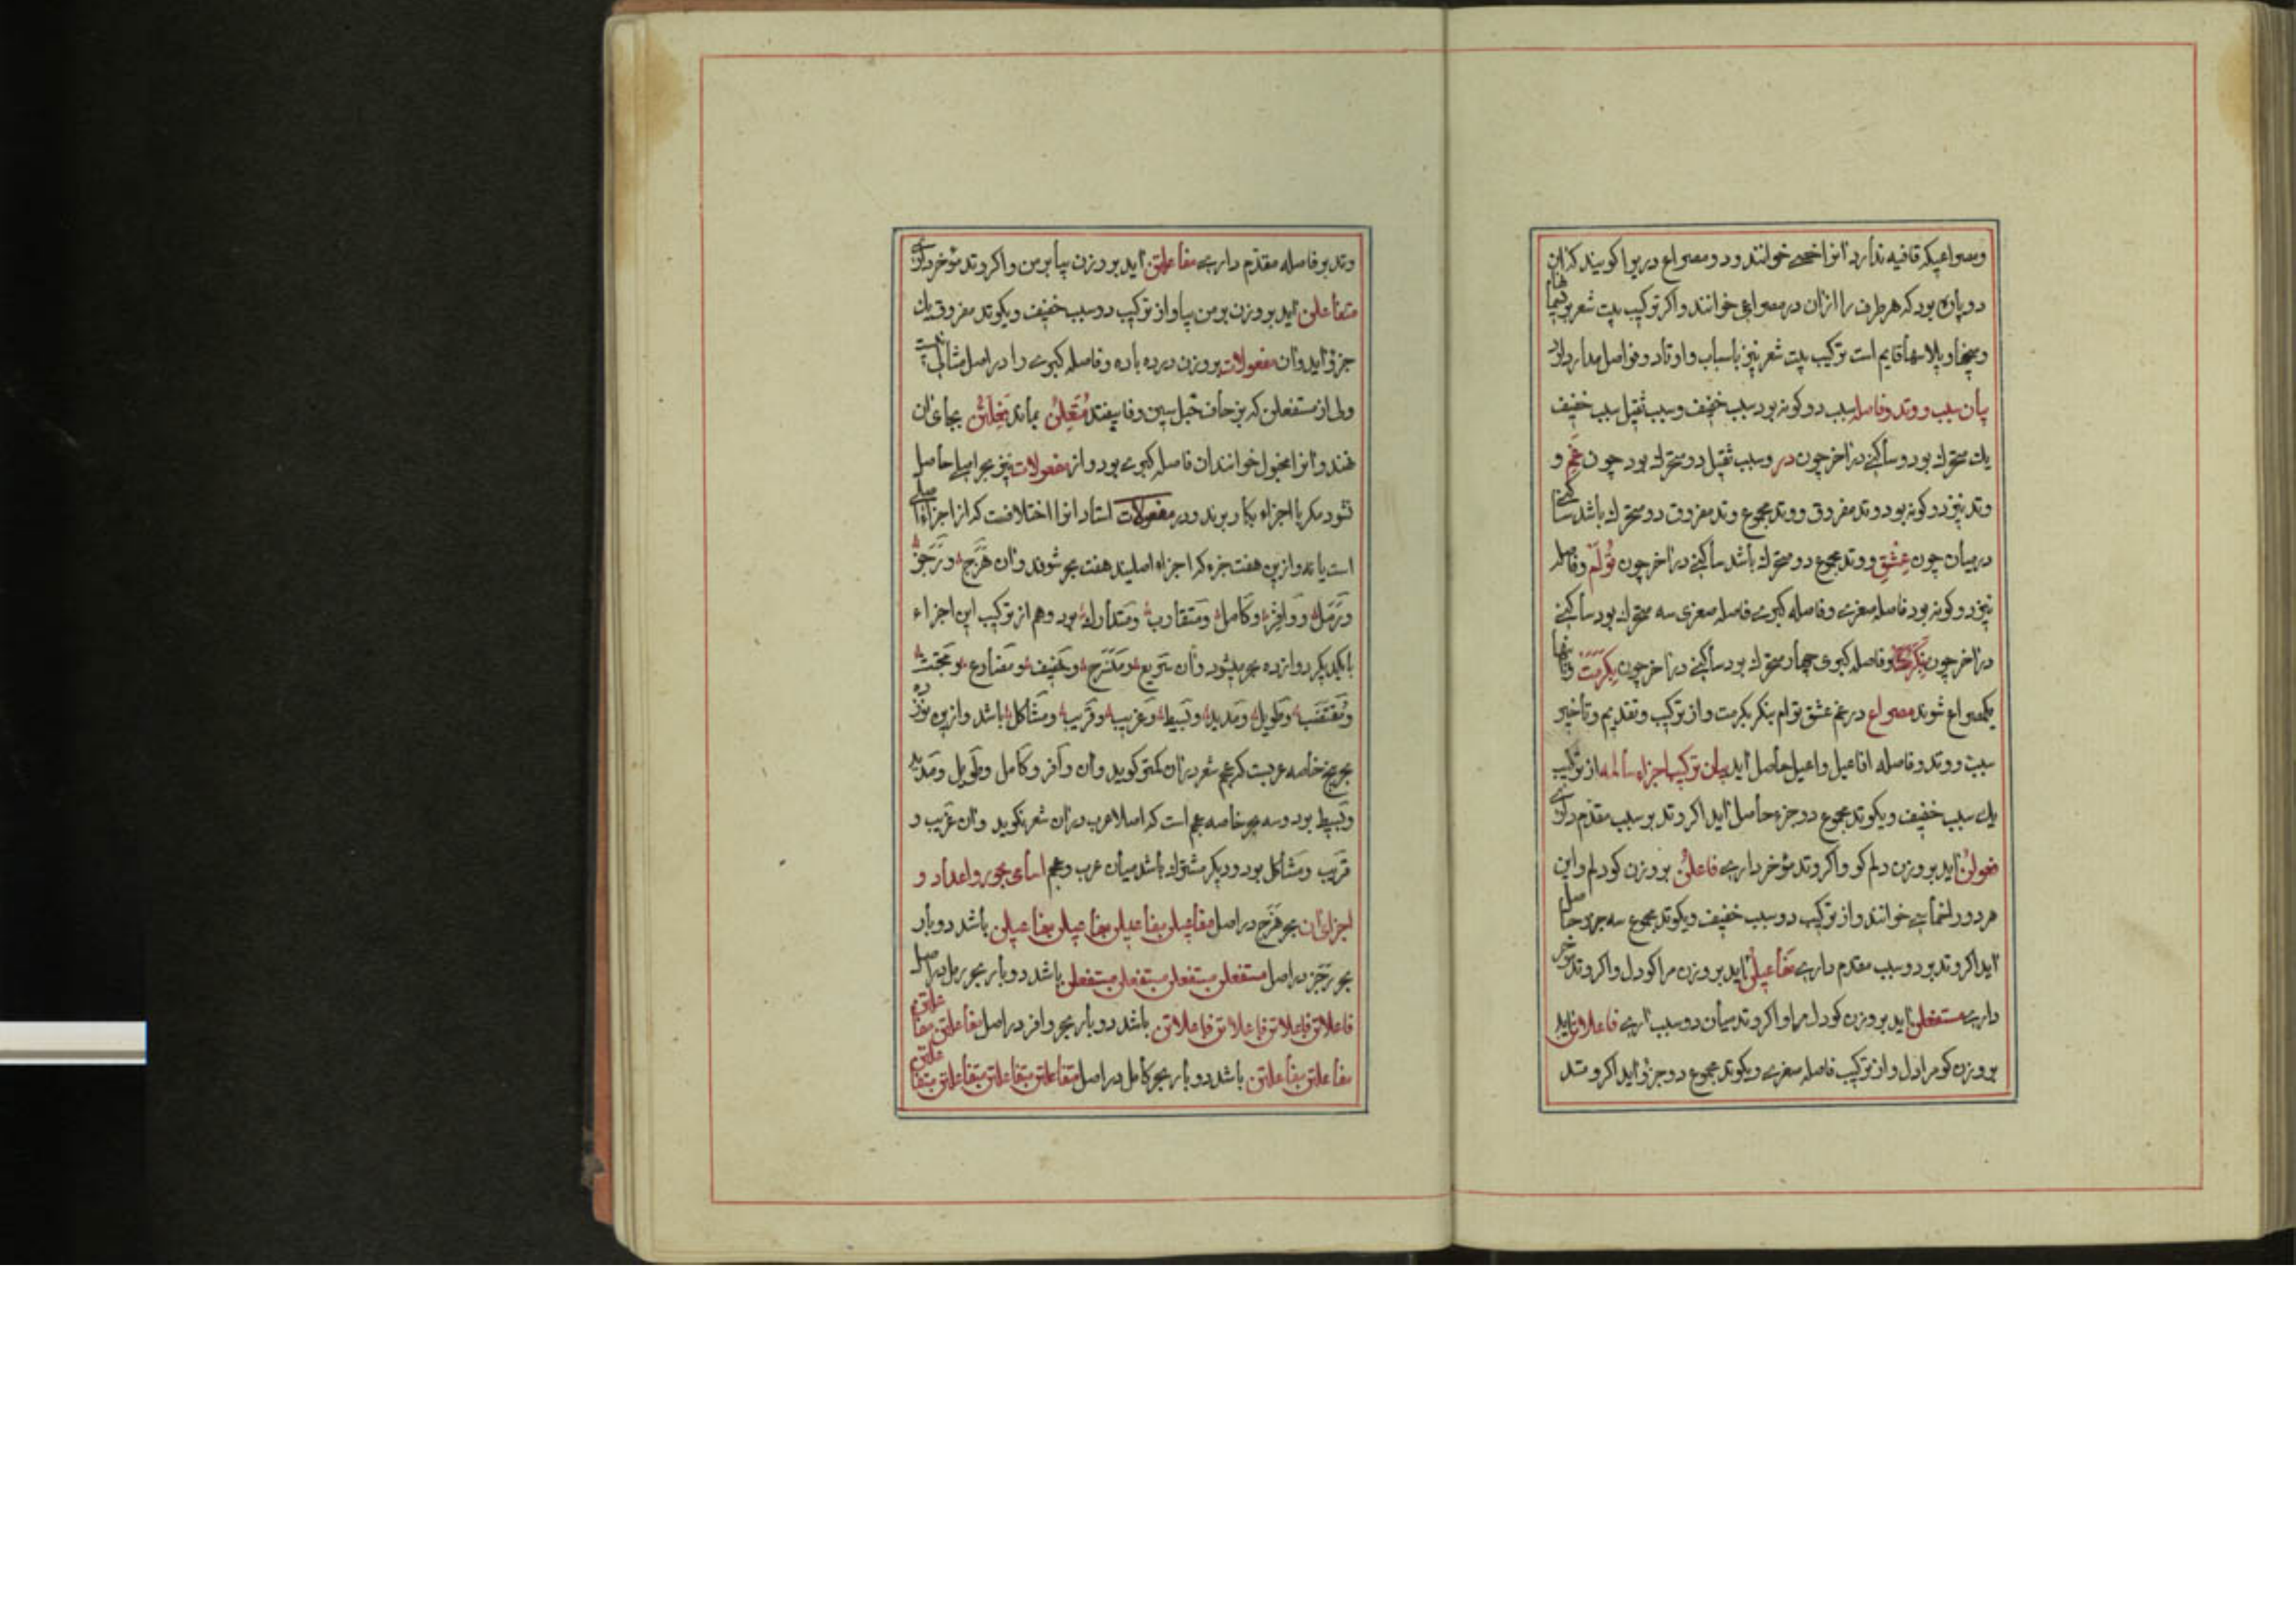 ومصراعیکه قافیه ندارد انرا خصی خوانند و دو مصراع در بر اکویند کذان
دو پاره بود که هر طرف را ازان در مصراعی خوانند واکر ترکیب بیت شعر بخیمها
ومیخها و پلاسها قایم است ترکیب بیت شعر نیز باسباب و اوتاد و فواصل مدار دارد
بیان سبب و وتد وفاصله سبب دو کونه بود سبب خفیف وسبب ثقیل سبب خفیف
یك متحرك بود وساکنی در اخر چون در وسبب ثقیل دو متحرك بود چون غم و
وتد نیز دو کونه بود وتد مفروق ووتد مجموع وتد مفروق دو متحرك باشد ساکنی
در میان چون عشق ووتد مجموع دو متحرك باشد ساکنی در اخر چون توام وفاصله
نیز دو کونه بود فاصله صغری وفاصله کبری فاصله صغری سه متحرك بود ساکنی
در اخر چون بنکر وفاصله کبری چهار متحرك بود ساکنی در اخر چون بکرمت
یکمصراع شوند مصراع در غم عشق توام بنکر بکرمت واز ترکیب وتقدیم وتأخیر
سبب ووتد وفاصله افاعیل حاصل اید بیان ترکیب اجزاء سالمه از ترکیب
یك سبب خفیف ویکوتد مجموع دو جزء حاصل اید اکر وتد بر سبب مقدم داری
فعولن اید بر وزن دلم کو واکر وتد مؤخر داری فاعلن بر وزن کو دلم واین
هر دو را خماسی خوانند واز ترکیب دو سبب خفیف ویکوتد مجموع سه جزء حاصل
اید اکر وتد بر دو سبب مقدم داری مفاعیلن اید بر وزن مرا کو دل واکر وتد مؤخر
داری مستفعلن اید بر وزن کو دل مرا واکر وتد میان دو سبب اری فاعلاتن اید
بر وزن کو مرا دل واز ترکیب فاصله صغری ویکوتد مجموع دو جزؤ اید اکر وتد
وتد بر فاصله مقدم داری مفاعلتن اید بر وزن بیا بر من واکر وتد مؤخر داری
متفاعلن اید بر وزن بر من بیا واز ترکیب دو سبب خفیف ویکوتد مفروق یك
جزؤ اید وان مفعولات بر وزن درده باده وفاصله کبری را در اصل مثالی نیست
ولی از مستفعلن که بزحاف خبل سین وفا بیفتد متعلن بماند فعلتن بجای ان
نهند وانرا مخبول خوانند ان فاصله کبری بود واز مفعولات نیز بحر اصلی حاصل
نشود مکر با اجزاء بکار برند ودر مفعولات استادانرا اختلافست که از اجزاء اصلی
است یا نه واز ین هفت جزء که اجزاء اصلیند هفت بحر شوند وان هزج ورجز
ورمل ووافر وکامل ومتقارب ومتدارك بود وهم از ترکیب این اجزاء
بایکدیکر دوازده بحر میشود وان سریع ومنسرح وخفیف ومضارع ومجتث
ومقتضب وطویل ومدید وبسیط وغریب وقریب ومشاکل باشد واز ین نوزده
بحر پنج خاصه عربست که عجم شعر دران کمتر کوید وان وافر وکامل وطویل ومدید
وبسیط بود وسه بحر خاصه عجم است که اصلا عرب دران شعر نکوید وان غریب و
قریب ومشاکل بود ودیکر مشترك باشد میان عرب وعجم اسامی بحور واعداد و
اجزای ان بحر هزج در اصل مفاعیلن مفاعیلن مفاعیلن مفاعیلن باشد دو بار
بحر رجز در اصل مستفعلن مستفعلن مستفعلن مستفعلن باشد دو بار بحر رمل در اصل
فاعلاتن فاعلاتن فاعلاتن فاعلاتن باشد دو بار بحر وافر در اصل مفاعلتن مفاعلتن
مفاعلتن مفاعلتن باشد دو بار بحر کامل در اصل متفاعلن متفاعلن متفاعلن متفاعلن